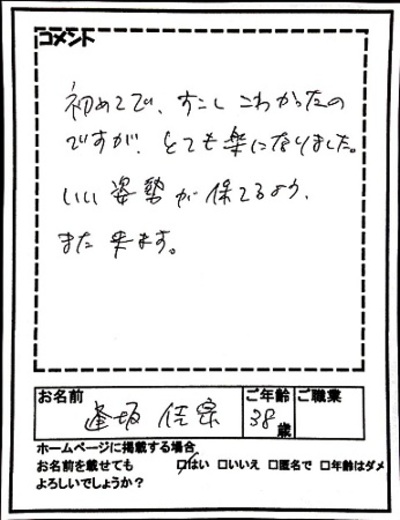 コメント
初めてで、すこしこわかったの
ですが、とても楽になりました。
いい姿勢が保てるよう、
また来ます。
お名前
ご年齢
ご職業
逢坂 佳宗
38
歳
ホームページに掲載する場合
お名前を載せても
よろしいでしょうか？
☑はい □いいえ □匿名で □年齢はダメ